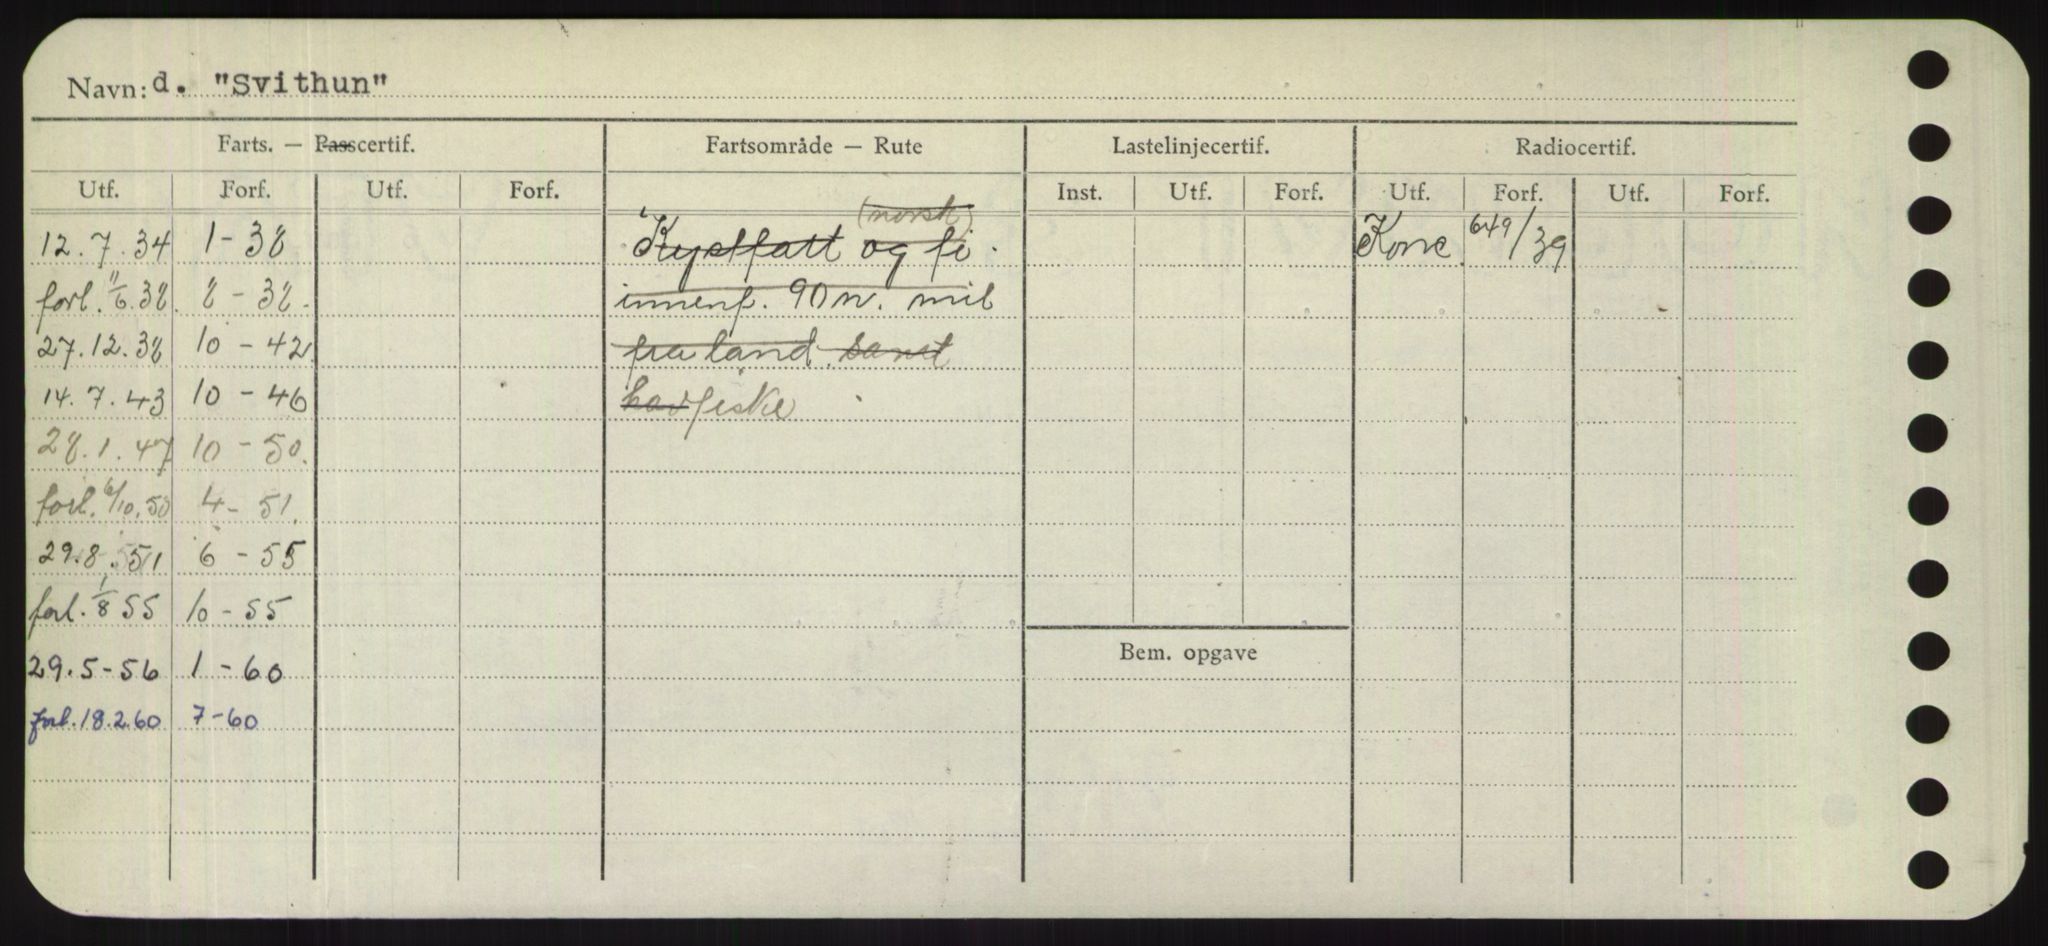 Navn: d. "Svithun"
Farts. — Passcertif. Fartsområde — Rute Lastelinjecertif. Radiocertif.
Utf. Forf. Utf. Forf. Inst. Utf. Forf. Utf. Forf. Utf. Forf.
(norsk)
12.7.34 1-38 Kystfart og fi Konc. 649/39
forl. 11/6.38. 8-38. innenf. 90 n. mil
27.12.38 10-42. fra land. samt
14.7.43 10-46 havfiske
28.1.47 10-50.
forl. 6/10.50 4-51.
29.8.51 6-55
forl. 1/8 55 10-55
29.5-56 1-60
Bem. opgave
forl. 18.2.60 7-60